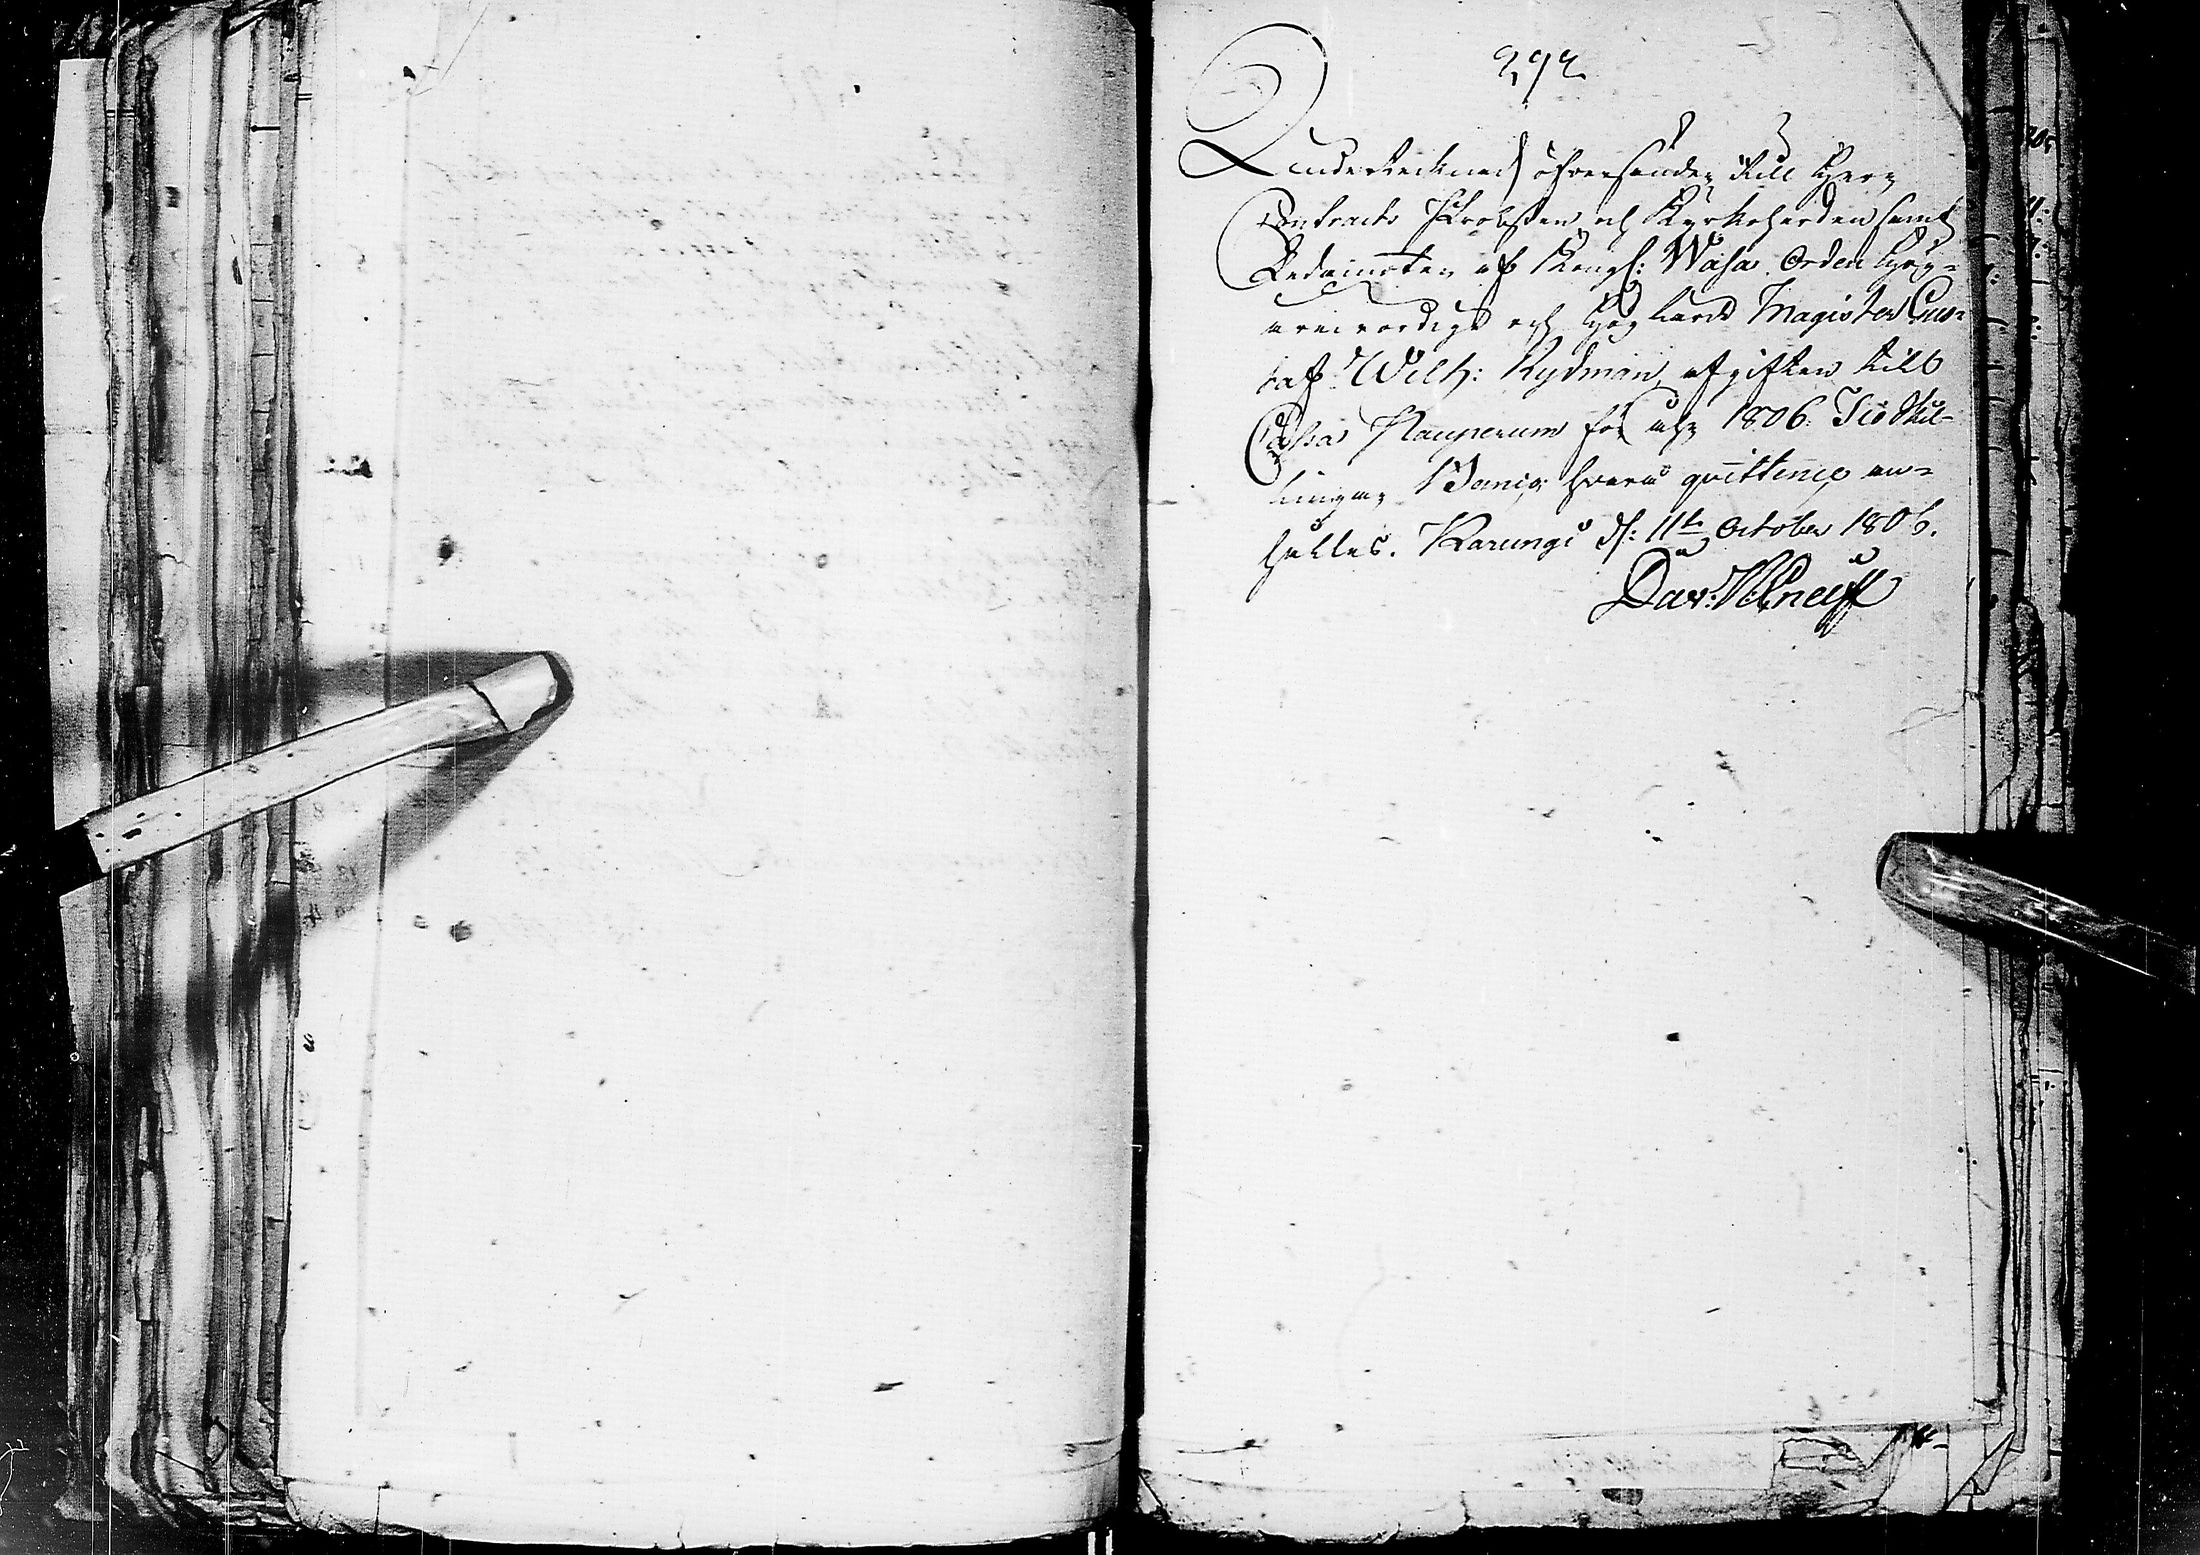 292
Undertecknad öfversänder till Herr
Contracts Probsten och Kyrkoherden samt
Ledamoten af Kongl: Wasa Orden Hög-
ärevördige och Höglärde Magister Gus-
taf Wilh: Rydman, afgiften till
Cassa Pauperum för åhr 1806. Tio Skil-
lingar Banco, hvarå qvittence, an-
hålles. Karungi d: 11te October 1806.